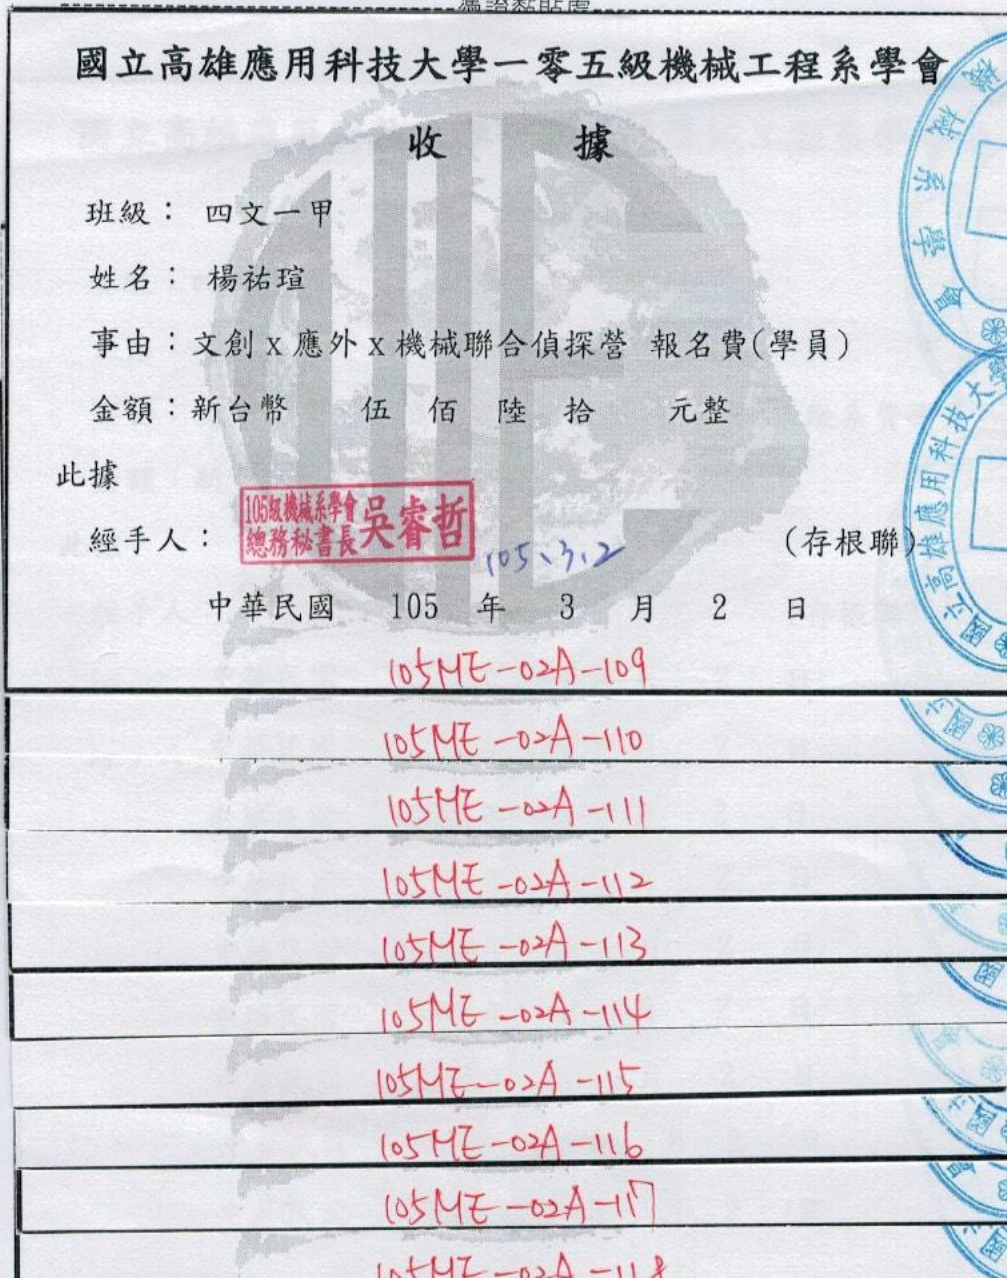 憑證黏貼處
國立高雄應用科技大學一零五級機械工程系學會
收 據
班級： 四文一甲
姓名： 楊祐瑄
事由：文創 x 應外 x 機械聯合偵探營 報名費(學員)
金額：新台幣 伍 佰 陸 拾 元整
此據
經手人：
105級機械系學會
總務秘書長
吳睿哲
105、3、2
(存根聯)
中華民國 105 年 3 月 2 日
105ME-02A-109
105ME-02A-110
105ME-02A-111
105ME-02A-112
105ME-02A-113
105ME-02A-114
105ME-02A-115
105ME-02A-116
105ME-02A-117
105ME-02A-118
機械系學會
國立高雄應用科技大學